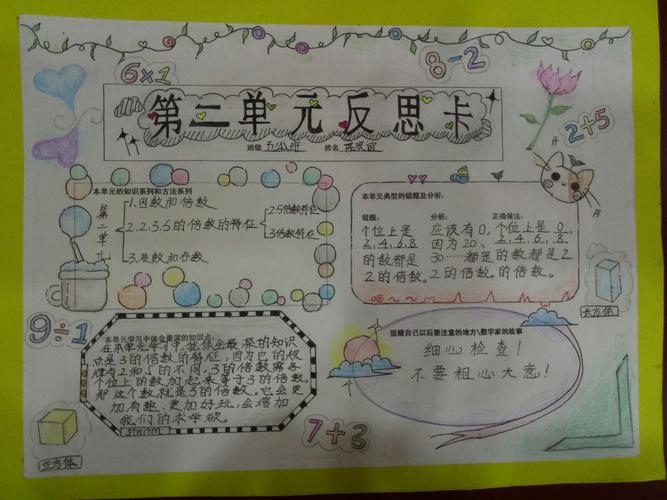 6×1
8-2
第二单元反思卡
2+5
班级 五(4)班 姓名
本单元的知识系列和方法系列
第二单元
1.因数和倍数
2.2、3、5的倍数的特征
2.5倍数特征
3倍数特征
3.质数和合数
本单元典型的错题及分析:
错题:
个位上是
2,4,6,8
的数都是
2的倍数。
分析:
应该有0,
因为20、
30……都是
2的倍数。
正确做法:
个位上是 0,
2,4,6,8,
的数都是2
的倍数。
长方体
9÷1
本单元学习中体会最深的知识点:
在本单元学习中,我体会最深的知识
点是3的倍数的特征,因为它的规
律与2和5的不同,3的倍数需各
个位上的数加起来等于3的倍数,
那这个数就是3的倍数。它会更
加有趣、更加好玩,会增加
我们的求学欲。
提醒自己以后要注意的地方\数学家的故事
细心检查!
不要粗心大意!
7+3
正方体